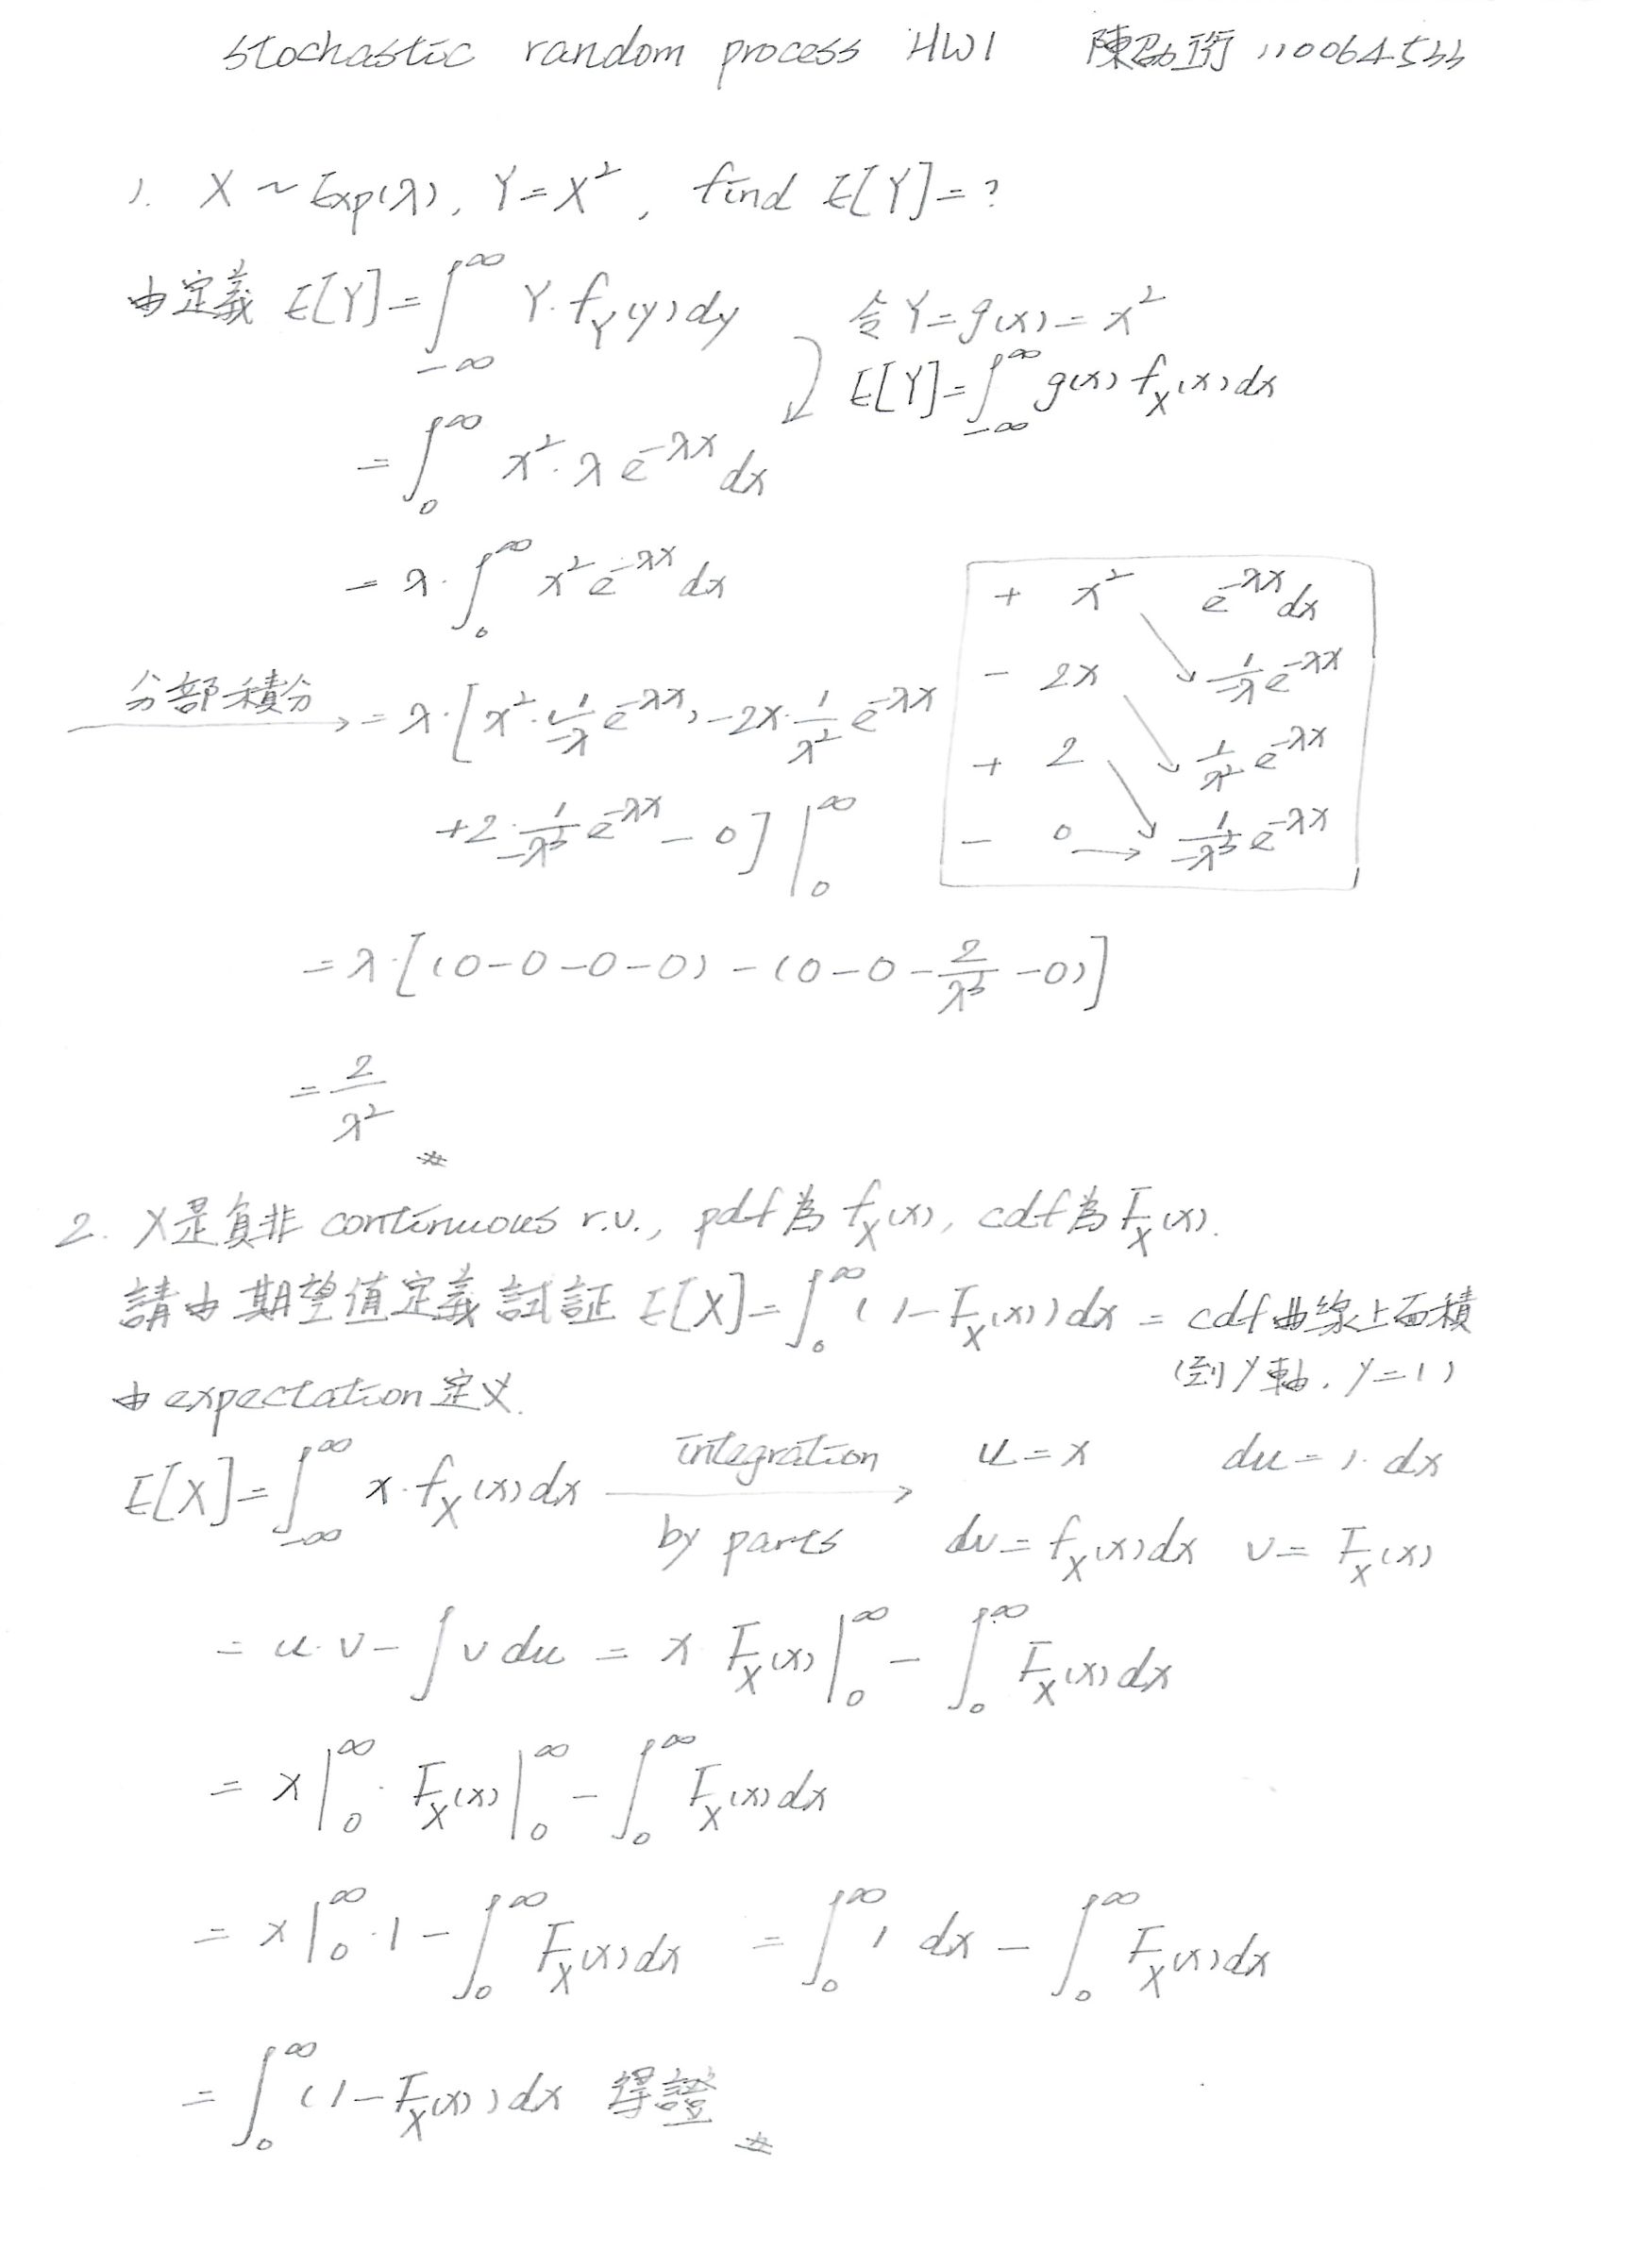 stochastic random process HW1 陳劭珩 110064533
1. X ~ Exp(λ), Y = X², find E[Y] = ?
由定義 E[Y] = ∫_{-∞}^{∞} Y · f_Y(y) dy 令 Y = g(x) = x²
E[Y] = ∫_{-∞}^{∞} g(x) f_X(x) dx
= ∫_0^∞ x² · λ e^{-λx} dx
= λ · ∫_0^∞ x² e^{-λx} dx
分部積分 → = λ · [ x² · \frac{1}{-λ} e^{-λx} - 2x · \frac{1}{λ²} e^{-λx}
+ 2 · \frac{1}{-λ³} e^{-λx} - 0 ] |_0^∞
+ x² e^{-λx} dx
- 2x \frac{1}{-λ} e^{-λx}
+ 2 \frac{1}{λ²} e^{-λx}
- 0 → \frac{1}{-λ³} e^{-λx}
= λ · [ (0-0-0-0) - (0-0-\frac{2}{λ³}-0) ]
= \frac{2}{λ²} #
2. X是負非 continuous r.v., pdf為 f_X(x), cdf為 F_X(x).
請由期望值定義試証 E[X] = ∫_0^∞ (1 - F_X(x)) dx = cdf曲線上面積
(到y軸, y=1)
由 expectation 定义.
E[X] = ∫_{-∞}^{∞} x · f_X(x) dx integration by parts → u = x du = 1 · dx
dv = f_X(x) dx v = F_X(x)
= u · v - ∫ v du = x · F_X(x) |_0^∞ - ∫_0^∞ F_X(x) dx
= x |_0^∞ · F_X(x) |_0^∞ - ∫_0^∞ F_X(x) dx
= x |_0^∞ · 1 - ∫_0^∞ F_X(x) dx = ∫_0^∞ 1 dx - ∫_0^∞ F_X(x) dx
= ∫_0^∞ (1 - F_X(x)) dx 得證 #